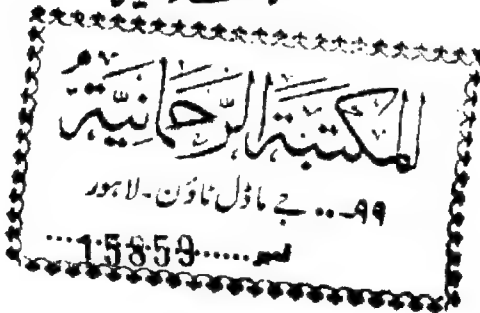 المكتبة الرحمانية
۹۹... جے ماڈل ٹاؤن۔ لاہور
نمبر......15859...